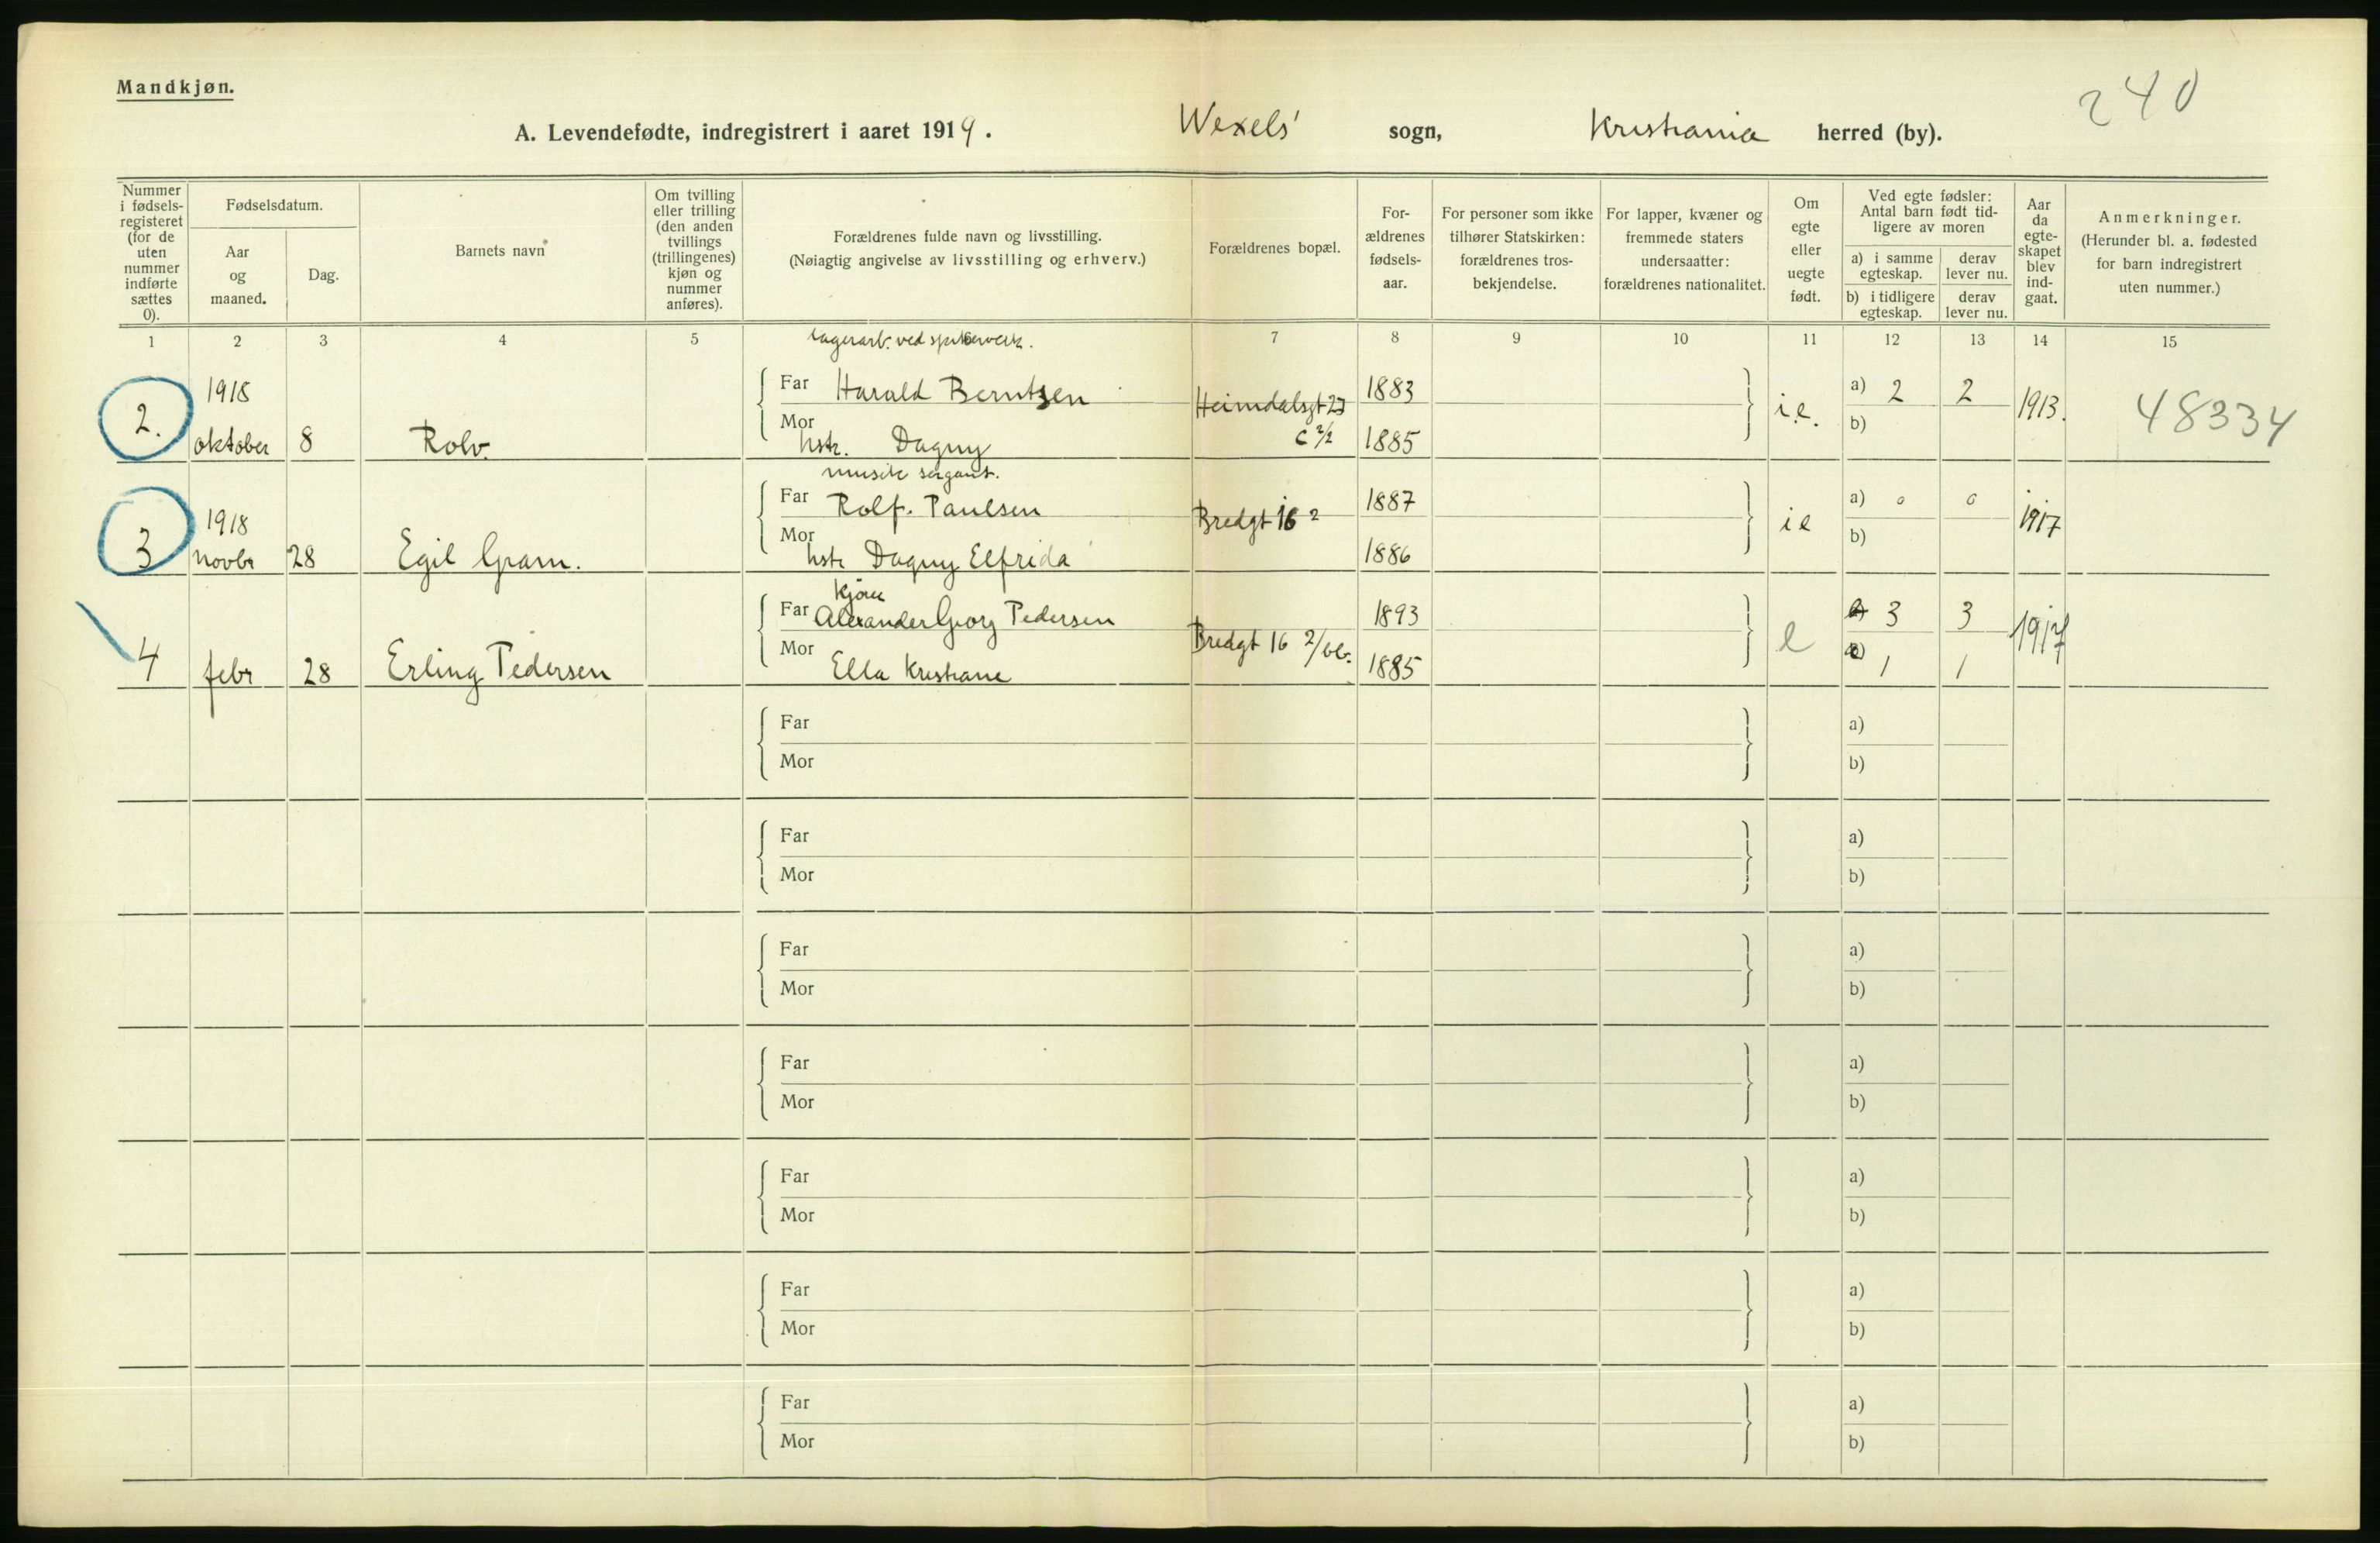 Mandkjøn.
240
A. Levendefødte, indregistrert i aaret 1919. Wexels' sogn, Kristiania herred (by).
Nummer i fødsels-registeret (for de uten nummer indførte sættes 0).
Fødselsdatum.
Aar og maaned.
Dag.
Barnets navn
Om tvilling eller trilling (den anden tvillings (trillingenes) kjøn og nummer anføres).
Forældrenes fulde navn og livsstilling.
(Nøiagtig angivelse av livsstilling og erhverv.)
Forældrenes bopæl.
For-ældrenes fødsels-aar.
For personer som ikke tilhører Statskirken: forældrenes tros-bekjendelse.
For lapper, kvæner og fremmede staters undersaatter: forældrenes nationalitet.
Om egte eller uegte født.
Ved egte fødsler: Antal barn født tid-ligere av moren
a) i samme egteskap.
derav lever nu.
b) i tidligere egteskap.
derav lever nu.
Aar da egte-skapet blev ind-gaat.
Anmerkninger.
(Herunder bl. a. fødested for barn indregistrert uten nummer.)
1 2 3 4 5 7 8 9 10 11 12 13 14 15
lagerarb. ved spikerverk.
1918 Far Harald Berntsen Heimdalsgt 27 1883 a) 2 2
2. oktober 8 Rolv. Mor hstr. Dagny c 2/2 1885 i.e. b) 1913. 48334
musik sergant.
1918 Far Rolf. Paulsen Bredgt 16 2 1887 a) 0 0
3 novbr 28 Egil Gram. Mor hstr Dagny Elfrida 1886 ie b) 1917
kjører
Far Alexander Georg Pedersen Bredgt 16 2/ob. 1893 a) 3 3
4 febr 28 Erling Pedersen Mor Ella Kristiane 1885 e b) 1 1 1917
Far a)
Mor b)
Far a)
Mor b)
Far a)
Mor b)
Far a)
Mor b)
Far a)
Mor b)
Far a)
Mor b)
Far a)
Mor b)